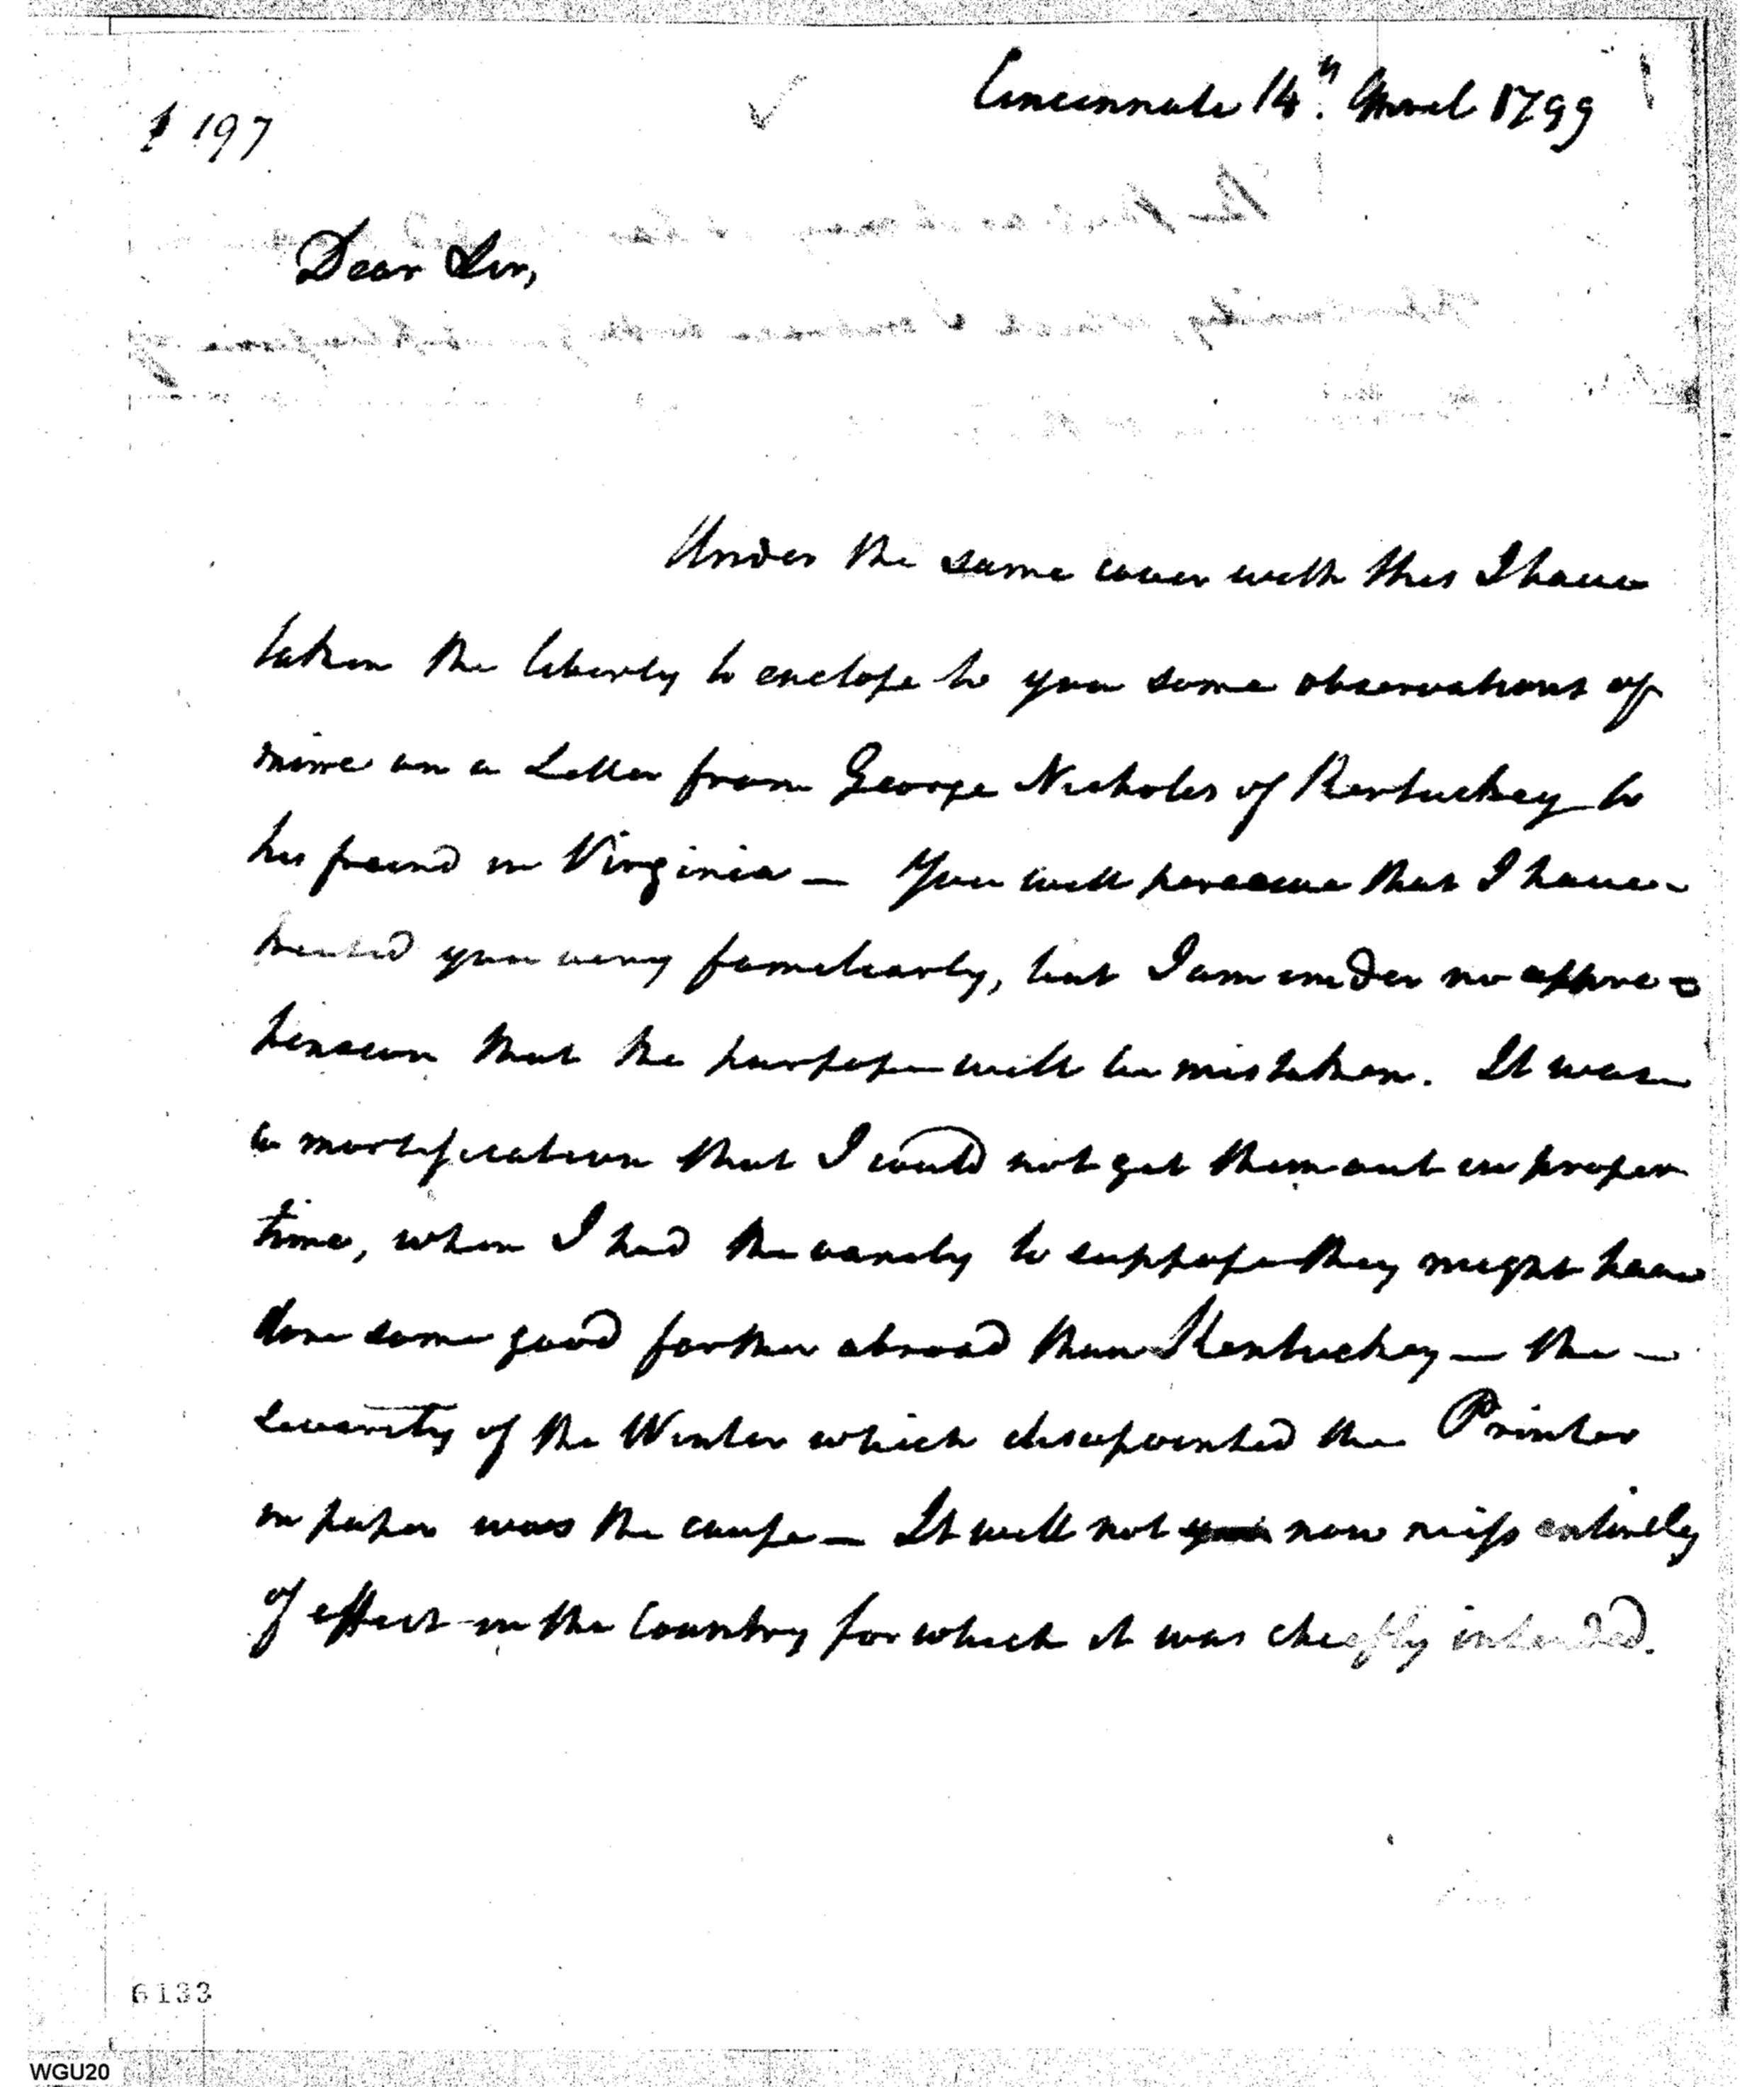 Cincinnati 14th. March 1799
197
Dear Sir,
Under the same cover with this I have
taken the liberty to enclose to you some observations of
mine on a Letter from George Nicholas of Kentucky to
his freind in Virginia — You will perceive that I have
treated you very familiarly, but I am under no appre=
hension that the purpose will be mistaken. It was
a mortification that I could not get them out in proper
time, when I had the vanity to suppose they might have
done some good farther abroad than Kentucky — the —
severity of the Winter which disapointed the Printer
in paper was the cause — It will not now miss entirely
of effect in the Country for which it was cheefly intended.
6133
WGU20